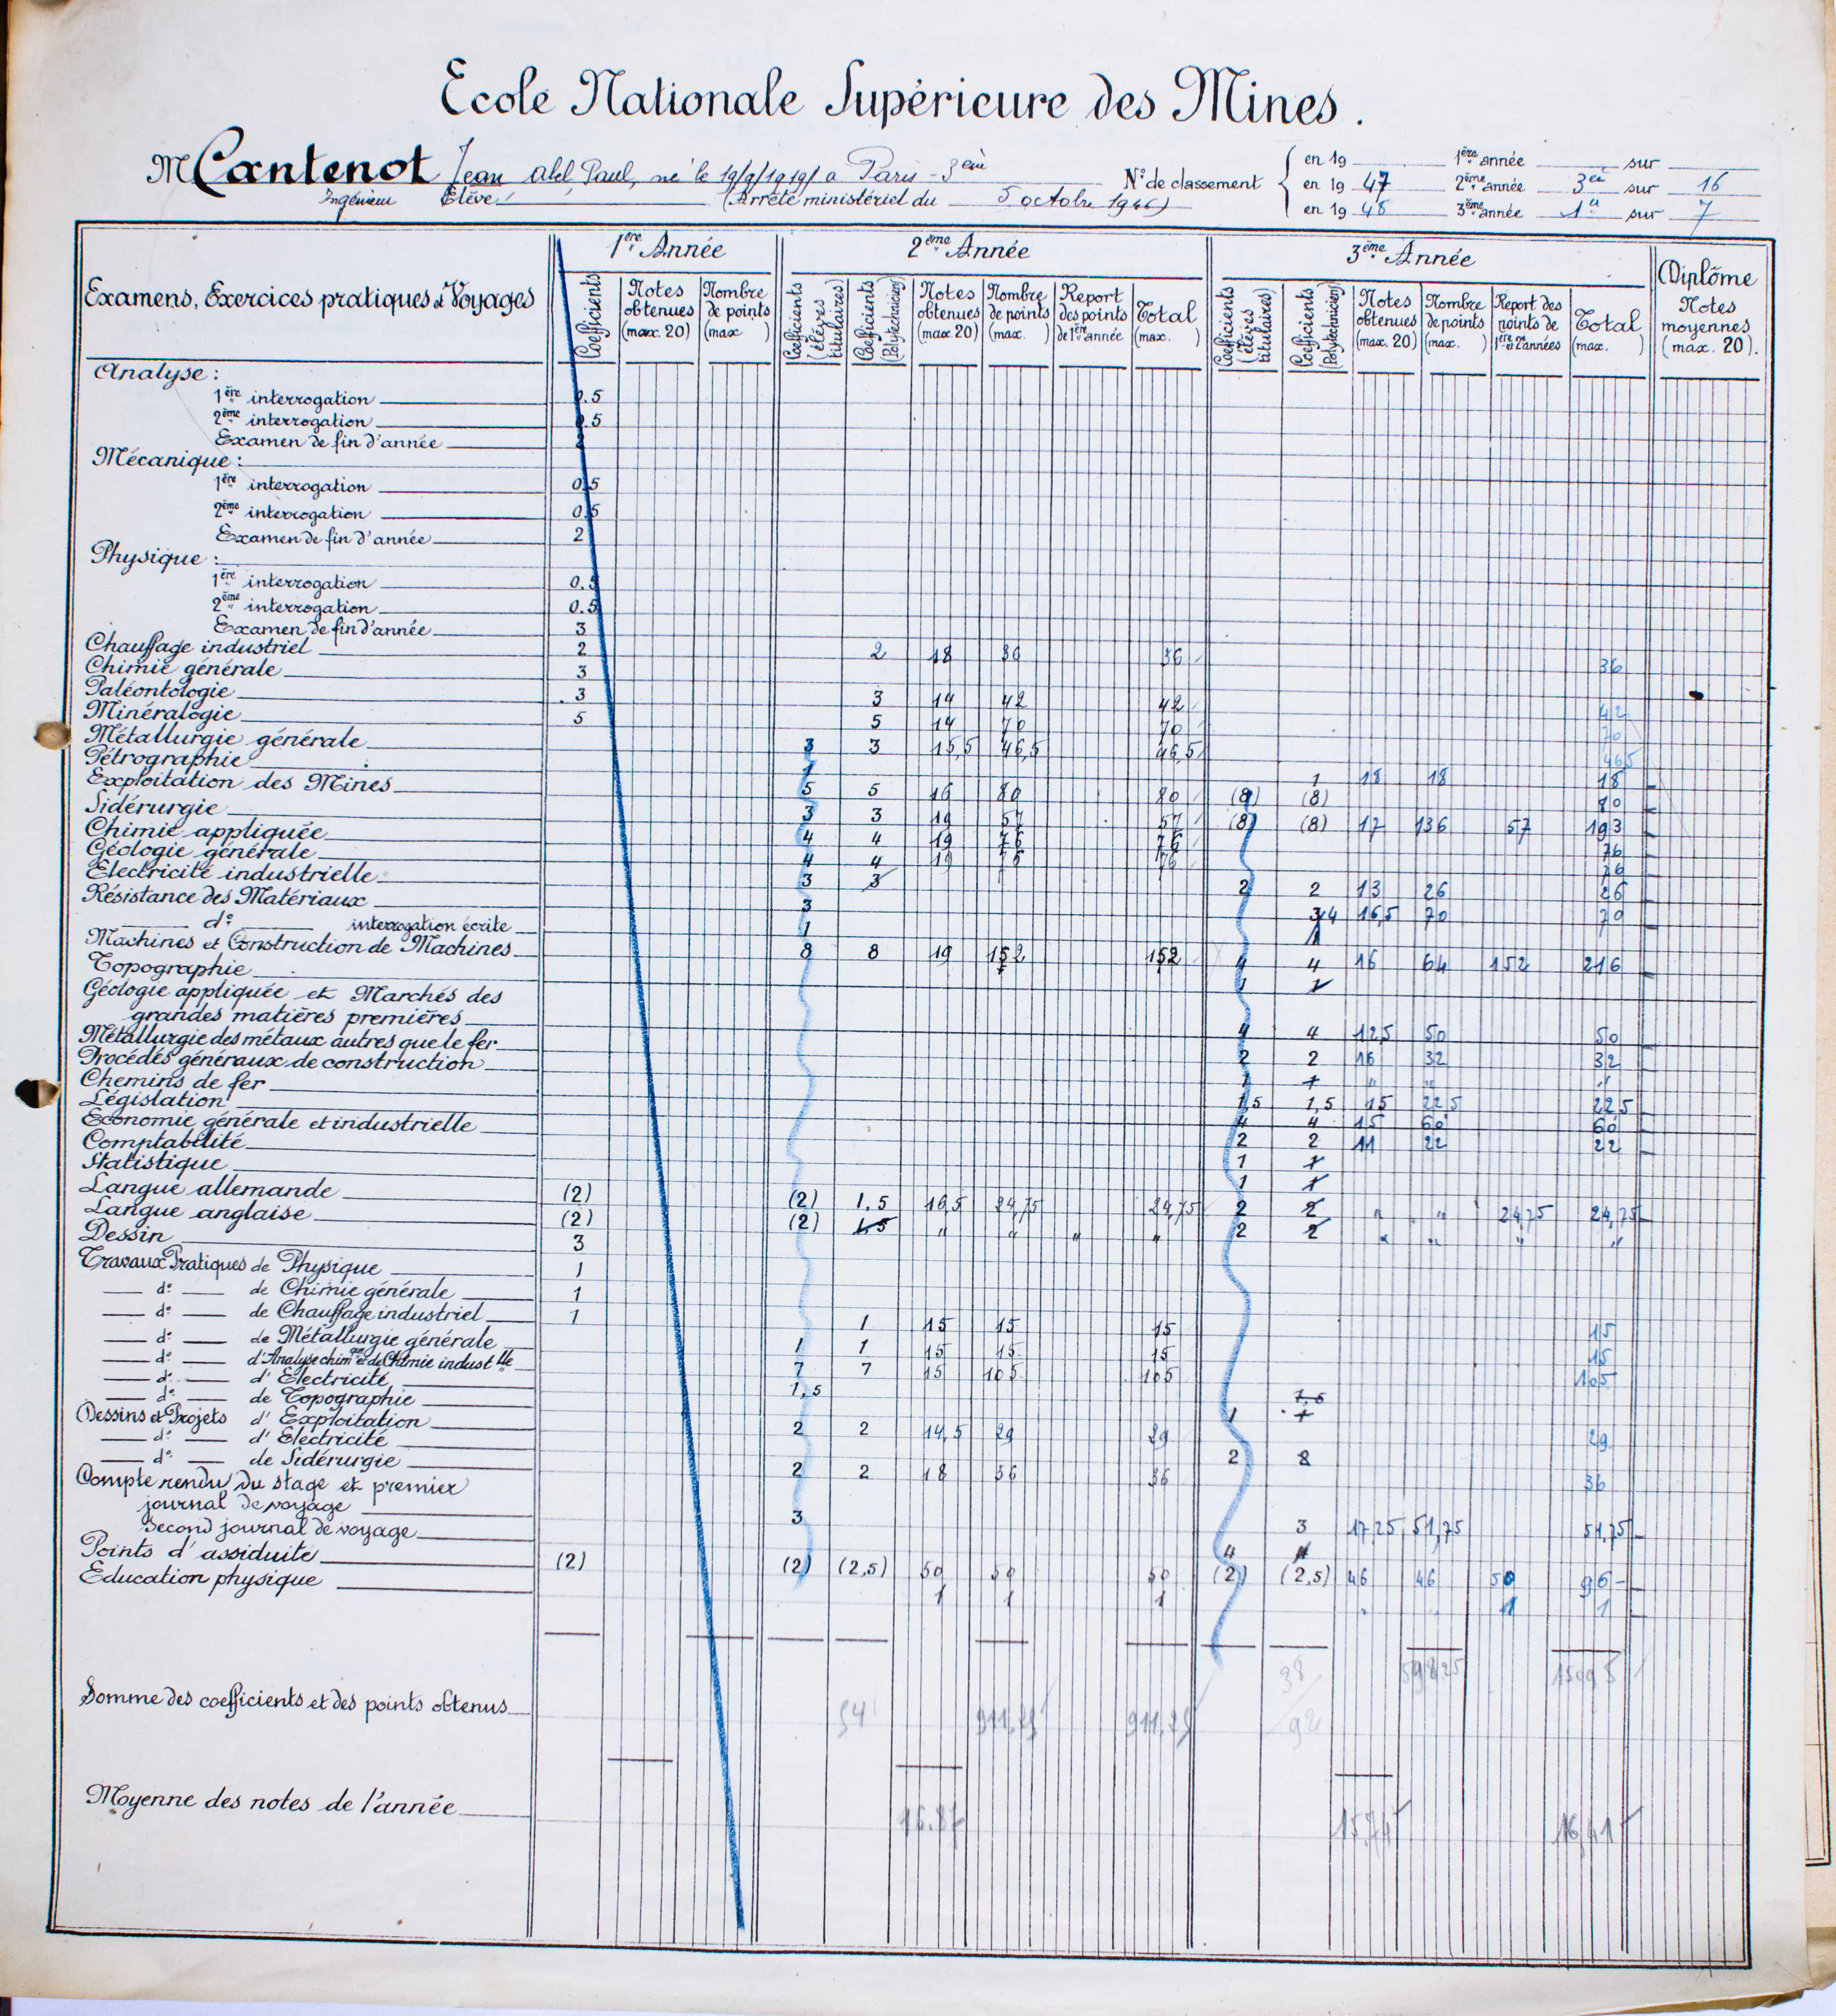 Ecole Nationale Supérieure des Mines.
M Cantenot Jean Abel, Paul, né le 19/9/1919 à Paris - 3eme
Ingénieur Elève (Arrêté ministériel du 5 octobre 1946)
N° de classement
en 19 1ère année sur
en 19 47 2ème année 3e sur 16
en 19 48 3ème année 1er sur 7
Examens, Exercices pratiques et Voyages
1ère Année 2ème Année 3ème Année Diplôme Notes moyennes (max. 20).
Coefficients Notes obtenues (max. 20) Nombre de points (max )
Coefficients (élèves titulaires) Coefficients (Polytechniciens) Notes obtenues (max. 20) Nombre de points (max. ) Report des points de 1ère année Total (max. )
Coefficients (élèves titulaires) Coefficients (Polytechniciens) Notes obtenues (max. 20) Nombre de points (max. ) Report des points de 1ère et 2e années Total (max. )
Analyse :
1ère interrogation 0.5
2ème interrogation 0.5
Examen de fin d'année 2
Mécanique :
1ère interrogation 0.5
2ème interrogation 0.5
Examen de fin d'année 2
Physique :
1ère interrogation 0.5
2ème interrogation 0.5
Examen de fin d'année 3
Chauffage industriel 2 2 18 36 36 36
Chimie générale 3
Paléontologie 3 3 14 42 42 42
Minéralogie 5 5 14 70 70 70
Métallurgie générale 3 3 15,5 46,5 46,5 46,5
Pétrographie 1 1 18 18 18
Exploitation des Mines 5 5 16 80 80 (8) (8) 80
Sidérurgie 3 3 19 57 57 (8) (8) 17 136 57 193
Chimie appliquée 4 4 19 76 76 76
Géologie générale 4 4 19 76 76 76
Electricité industrielle 3 3 2 2 13 26 26
Résistance des Matériaux 3 3 4 16,5 70 70
d° interrogation écrite 1 1
Machines et Construction de Machines 8 8 19 152 152 4 4 16 64 152 216
Topographie 1 1
Géologie appliquée et Marchés des
grandes matières premières 4 4 12,5 50 50
Métallurgie des métaux autres que le fer 2 2 16 32 32
Procédés généraux de construction 1 1 " " "
Chemins de fer 1,5 1,5 15 22,5 22,5
Législation 4 4 15 60 60
Economie générale et industrielle 2 2 11 22 22
Comptabilité 1 1
Statistique 1 1
Langue allemande (2) (2) 1,5 16,5 24,75 24,75 2 2 " " 24,75 24,75
Langue anglaise (2) (2) 1,5 " " " " 2 2 " " " "
Dessin 3
Travaux Pratiques de Physique 1
d° de Chimie générale 1
d° de Chauffage industriel 1 1 15 15 15 15
d° de Métallurgie générale 1 1 15 15 15 15
d° d'Analyse chimque et de Chimie industlle 7 7 15 105 105 105
d° d'Electricité 1,5 1,5
d° de Topographie 1 1
Dessins et Projets d'Exploitation 2 2 14,5 29 29 29
d° d'Electricité 2 2
d° de Sidérurgie 2 2 18 36 36 36
Compte rendu du stage et premier
journal de voyage 3 3 17,25 51,75 51,75
Second journal de voyage 4 4
Points d'assiduité (2) (2) (2,5) 50 50 50 (2) (2,5) 46 46 50 96
Education physique 1 1 1 " " 1 1
Somme des coefficients et des points obtenus 54 911,25 911,25 38 92 598,25 1509,5
Moyenne des notes de l'année 16.87 15,74 16,41